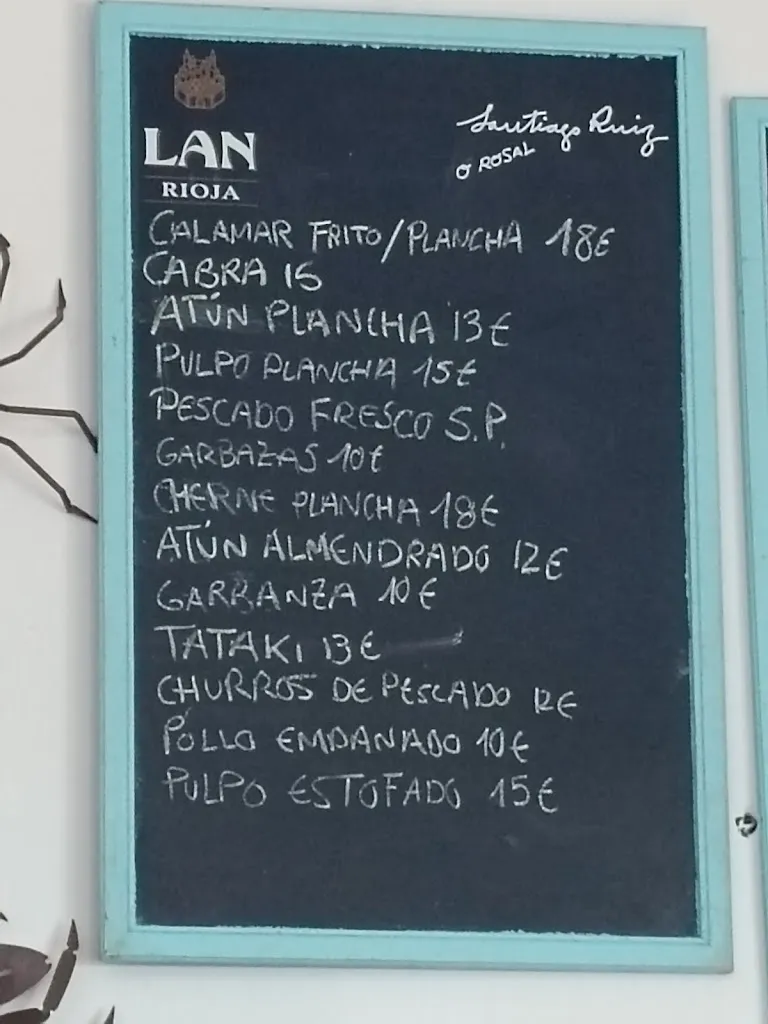 LAN
RIOJA
Santiago Ruiz
O ROSAL
CALAMAR FRITO/PLANCHA 18€
CABRA 15
ATÚN PLANCHA 13€
PULPO PLANCHA 15€
PESCADO FRESCO S.P.
GARBAZAS 10€
CHERNE PLANCHA 18€
ATÚN ALMENDRADO 12€
GARBANZA 10€
TATAKI 13€
CHURROS DE PESCADO 12€
POLLO EMPANADO 10€
PULPO ESTOFADO 15€